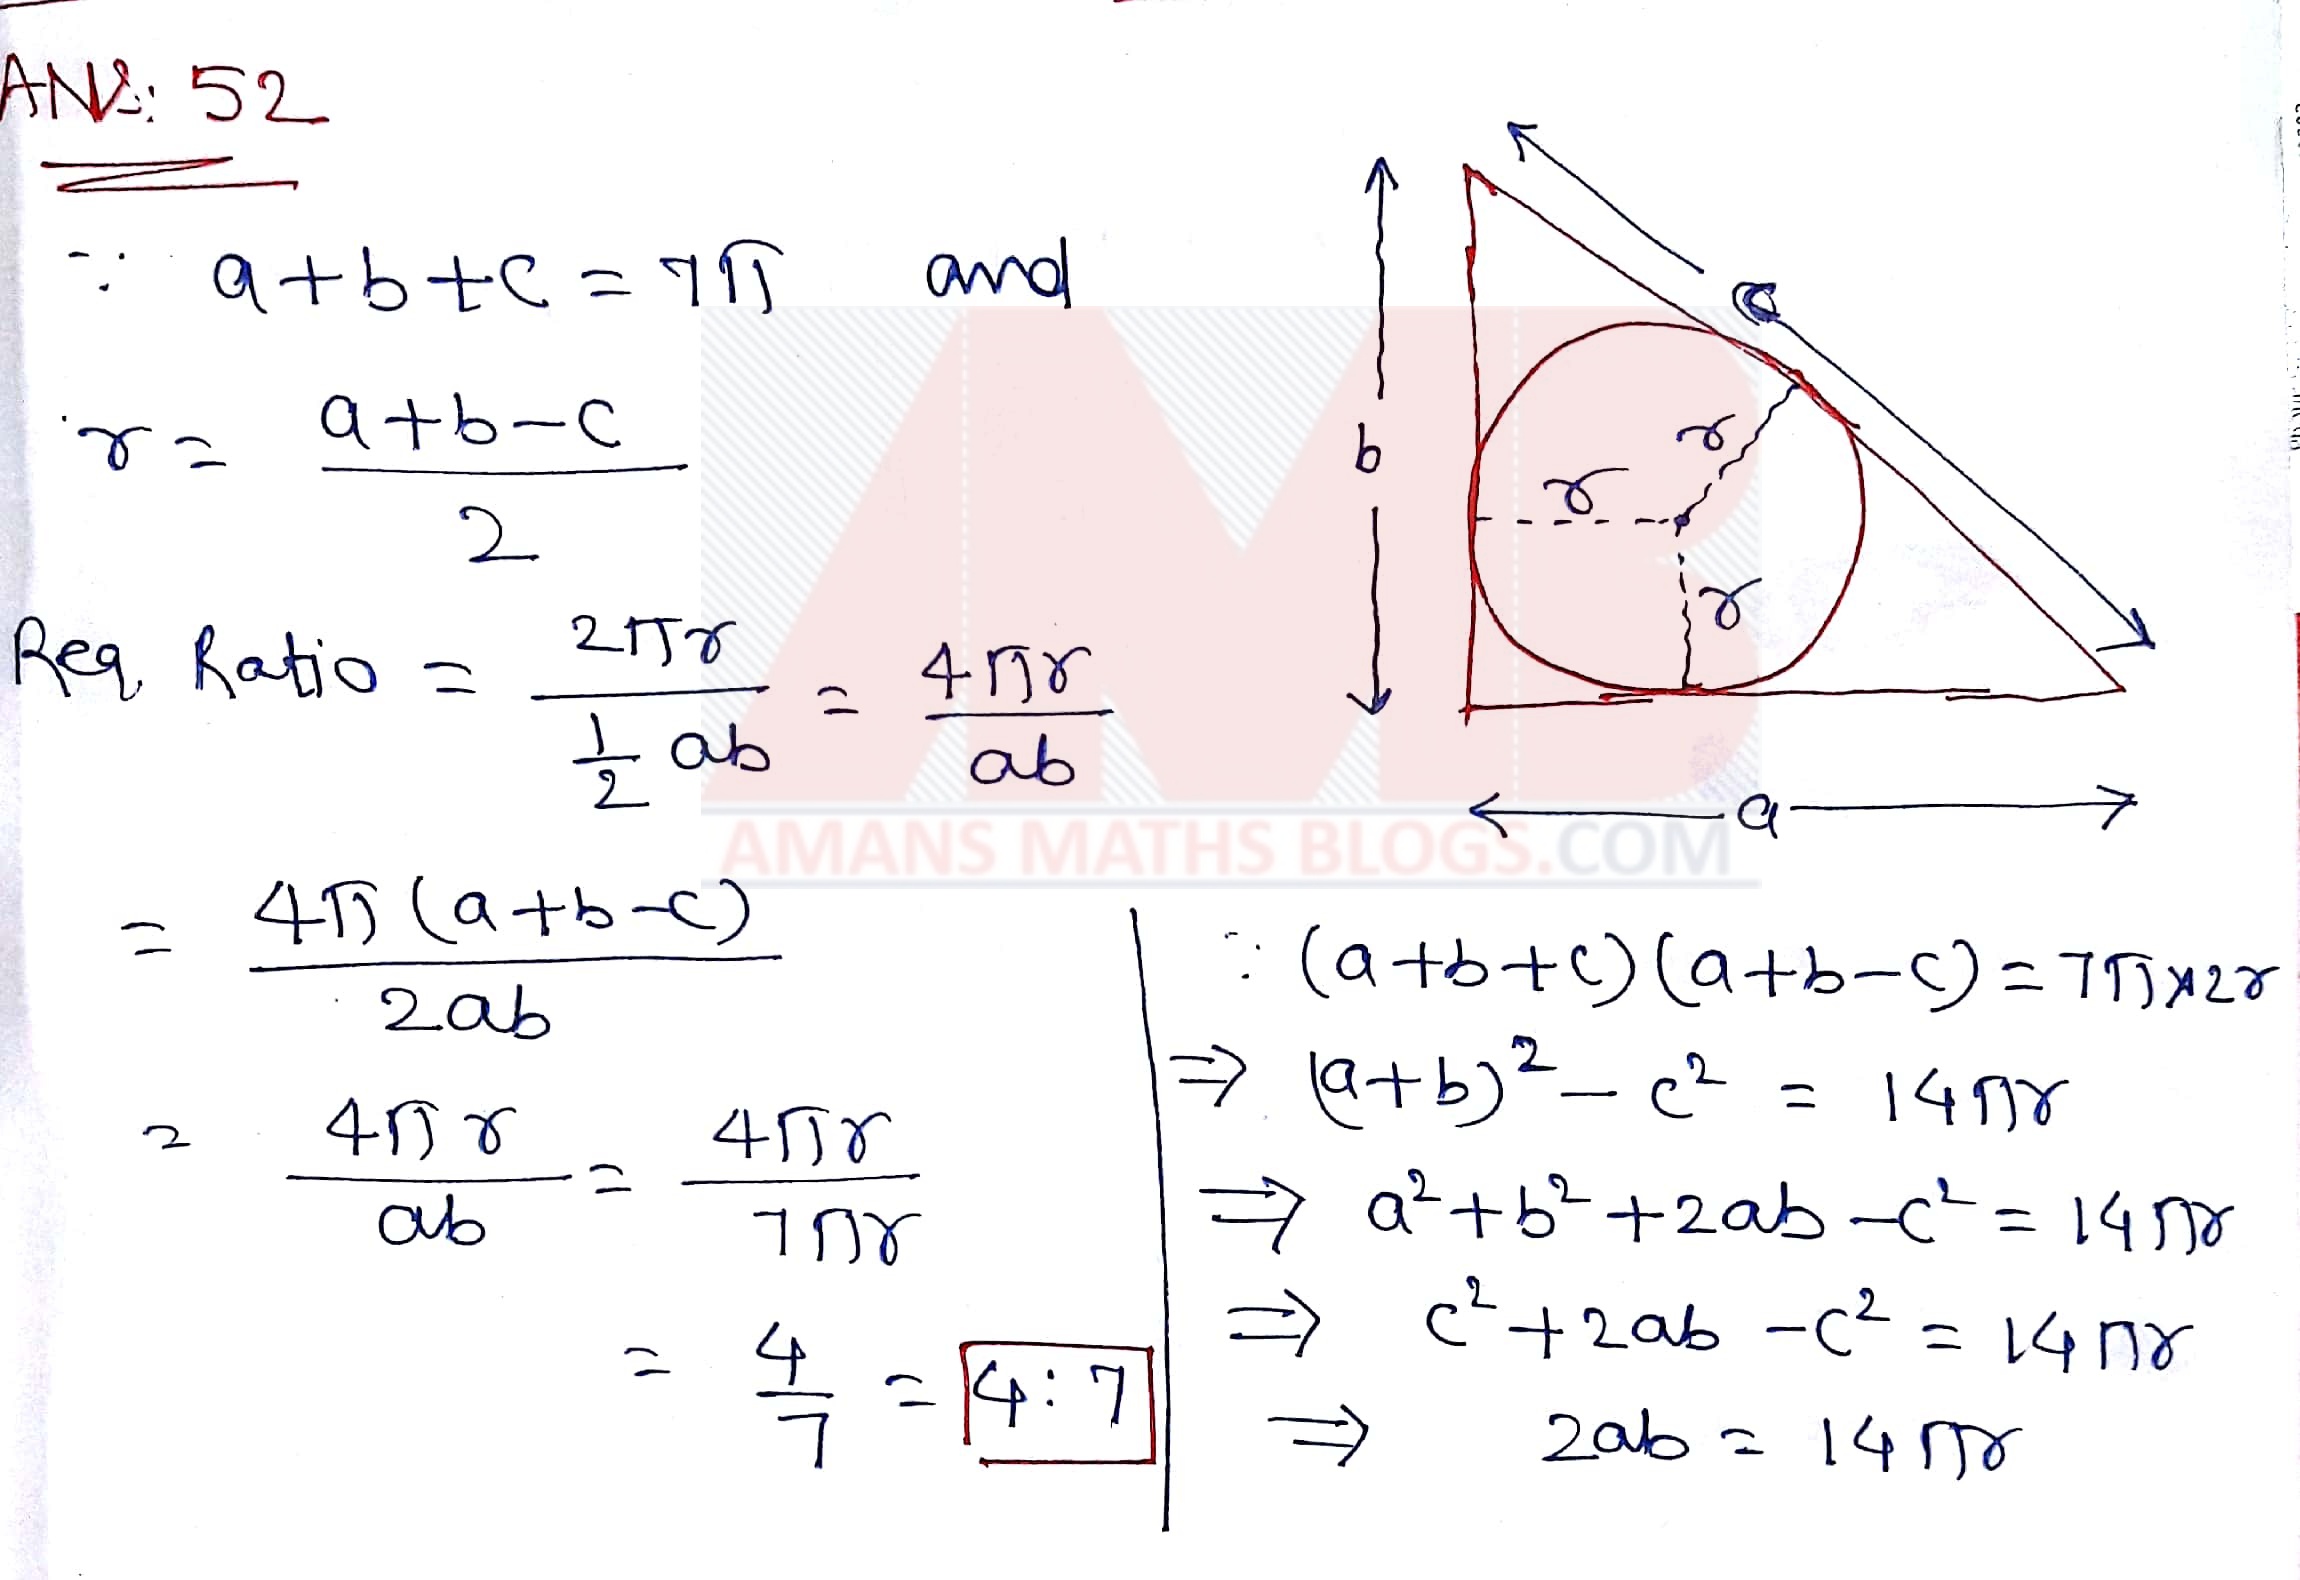 ANS: 52
∵ a+b+c = 7π and
r = (a+b-c)/2
Req. Ratio = 2πr/(1/2 ab) = 4πr/ab
= 4π(a+b-c)/2ab
= 4πr/ab = 4πr/7πr
= 4/7 = 4:7
b
c
r
r
r
a
AMANS MATHS BLOGS.COM
∵ (a+b+c)(a+b-c) = 7π×2r
⇒ (a+b)² - c² = 14πr
⇒ a²+b²+2ab-c² = 14πr
⇒ c²+2ab-c² = 14πr
⇒ 2ab = 14πr